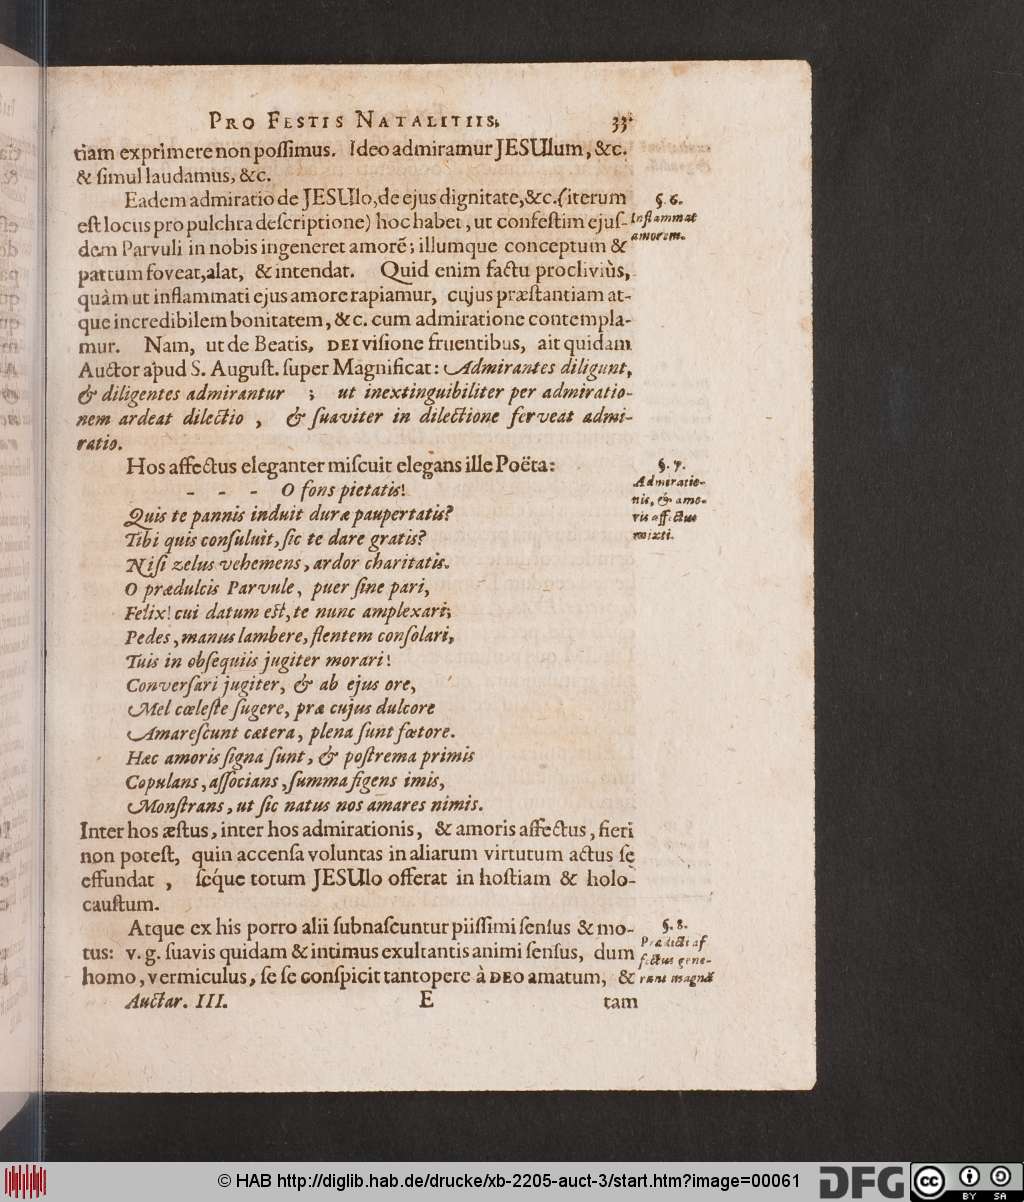 PRO FESTIS NATALITIIS. 33
tiam exprimere non poſſimus. Ideo admiramur JESUlum, &c.
& ſimul laudamus, &c.
Eadem admiratio de JESUlo, de ejus dignitate, &c. (iterum
eſt locus pro pulchra deſcriptione) hoc habet, ut confeſtim ejuſ-
dem Parvuli in nobis ingeneret amorē; illumque conceptum &
partum foveat, alat, & intendat. Quid enim factu procliviùs,
quàm ut inflammati ejus amore rapiamur, cujus præſtantiam at-
que incredibilem bonitatem, &c. cum admiratione contempla-
mur. Nam, ut de Beatis, DEI viſione fruentibus, ait quidam
Auctor apud S. Auguſt. ſuper Magnificat: Admirantes diligunt,
& diligentes admirantur ; ut inextinguibiliter per admiratio-
nem ardeat dilectio , & ſuaviter in dilectione ferveat admi-
ratio.
§. 6.
Inflammat
amorem.
Hos affectus eleganter miſcuit elegans ille Poëta:
- - - O fons pietatis!
Quis te pannis induit duræ paupertatis?
Tibi quis conſuluit, ſic te dare gratis?
Niſi zelus vehemens, ardor charitatis.
O prædulcis Parvule, puer ſine pari,
Felix! cui datum eſt, te nunc amplexari;
Pedes, manus lambere, flentem conſolari,
Tuis in obſequiis jugiter morari!
Converſari jugiter, & ab ejus ore,
Mel cœleſte ſugere, præ cujus dulcore
Amareſcunt cætera, plena ſunt fœtore.
Hæc amoris ſigna ſunt, & poſtrema primis
Copulans, aſſocians, ſumma figens imis,
Monſtrans, ut ſic natus nos amares nimis.
§. 7.
Admiratio-
nis, & amo-
ris affectus
mixti.
Inter hos æſtus, inter hos admirationis, & amoris affectus, fieri
non poteſt, quin accenſa voluntas in aliarum virtutum actus ſe
effundat , ſéque totum JESUlo offerat in hoſtiam & holo-
cauſtum.
Atque ex his porro alii ſubnaſcuntur piiſſimi ſenſus & mo-
tus: v. g. ſuavis quidam & intimus exultantis animi ſenſus, dum
homo, vermiculus, ſe ſe conſpicit tantopere à DEO amatum, &
§. 8.
Prædicti af
fectus gene-
rant magnā
Auctar. III. E tam
© HAB http://diglib.hab.de/drucke/xb-2205-auct-3/start.htm?image=00061
DFG
cc BY SA